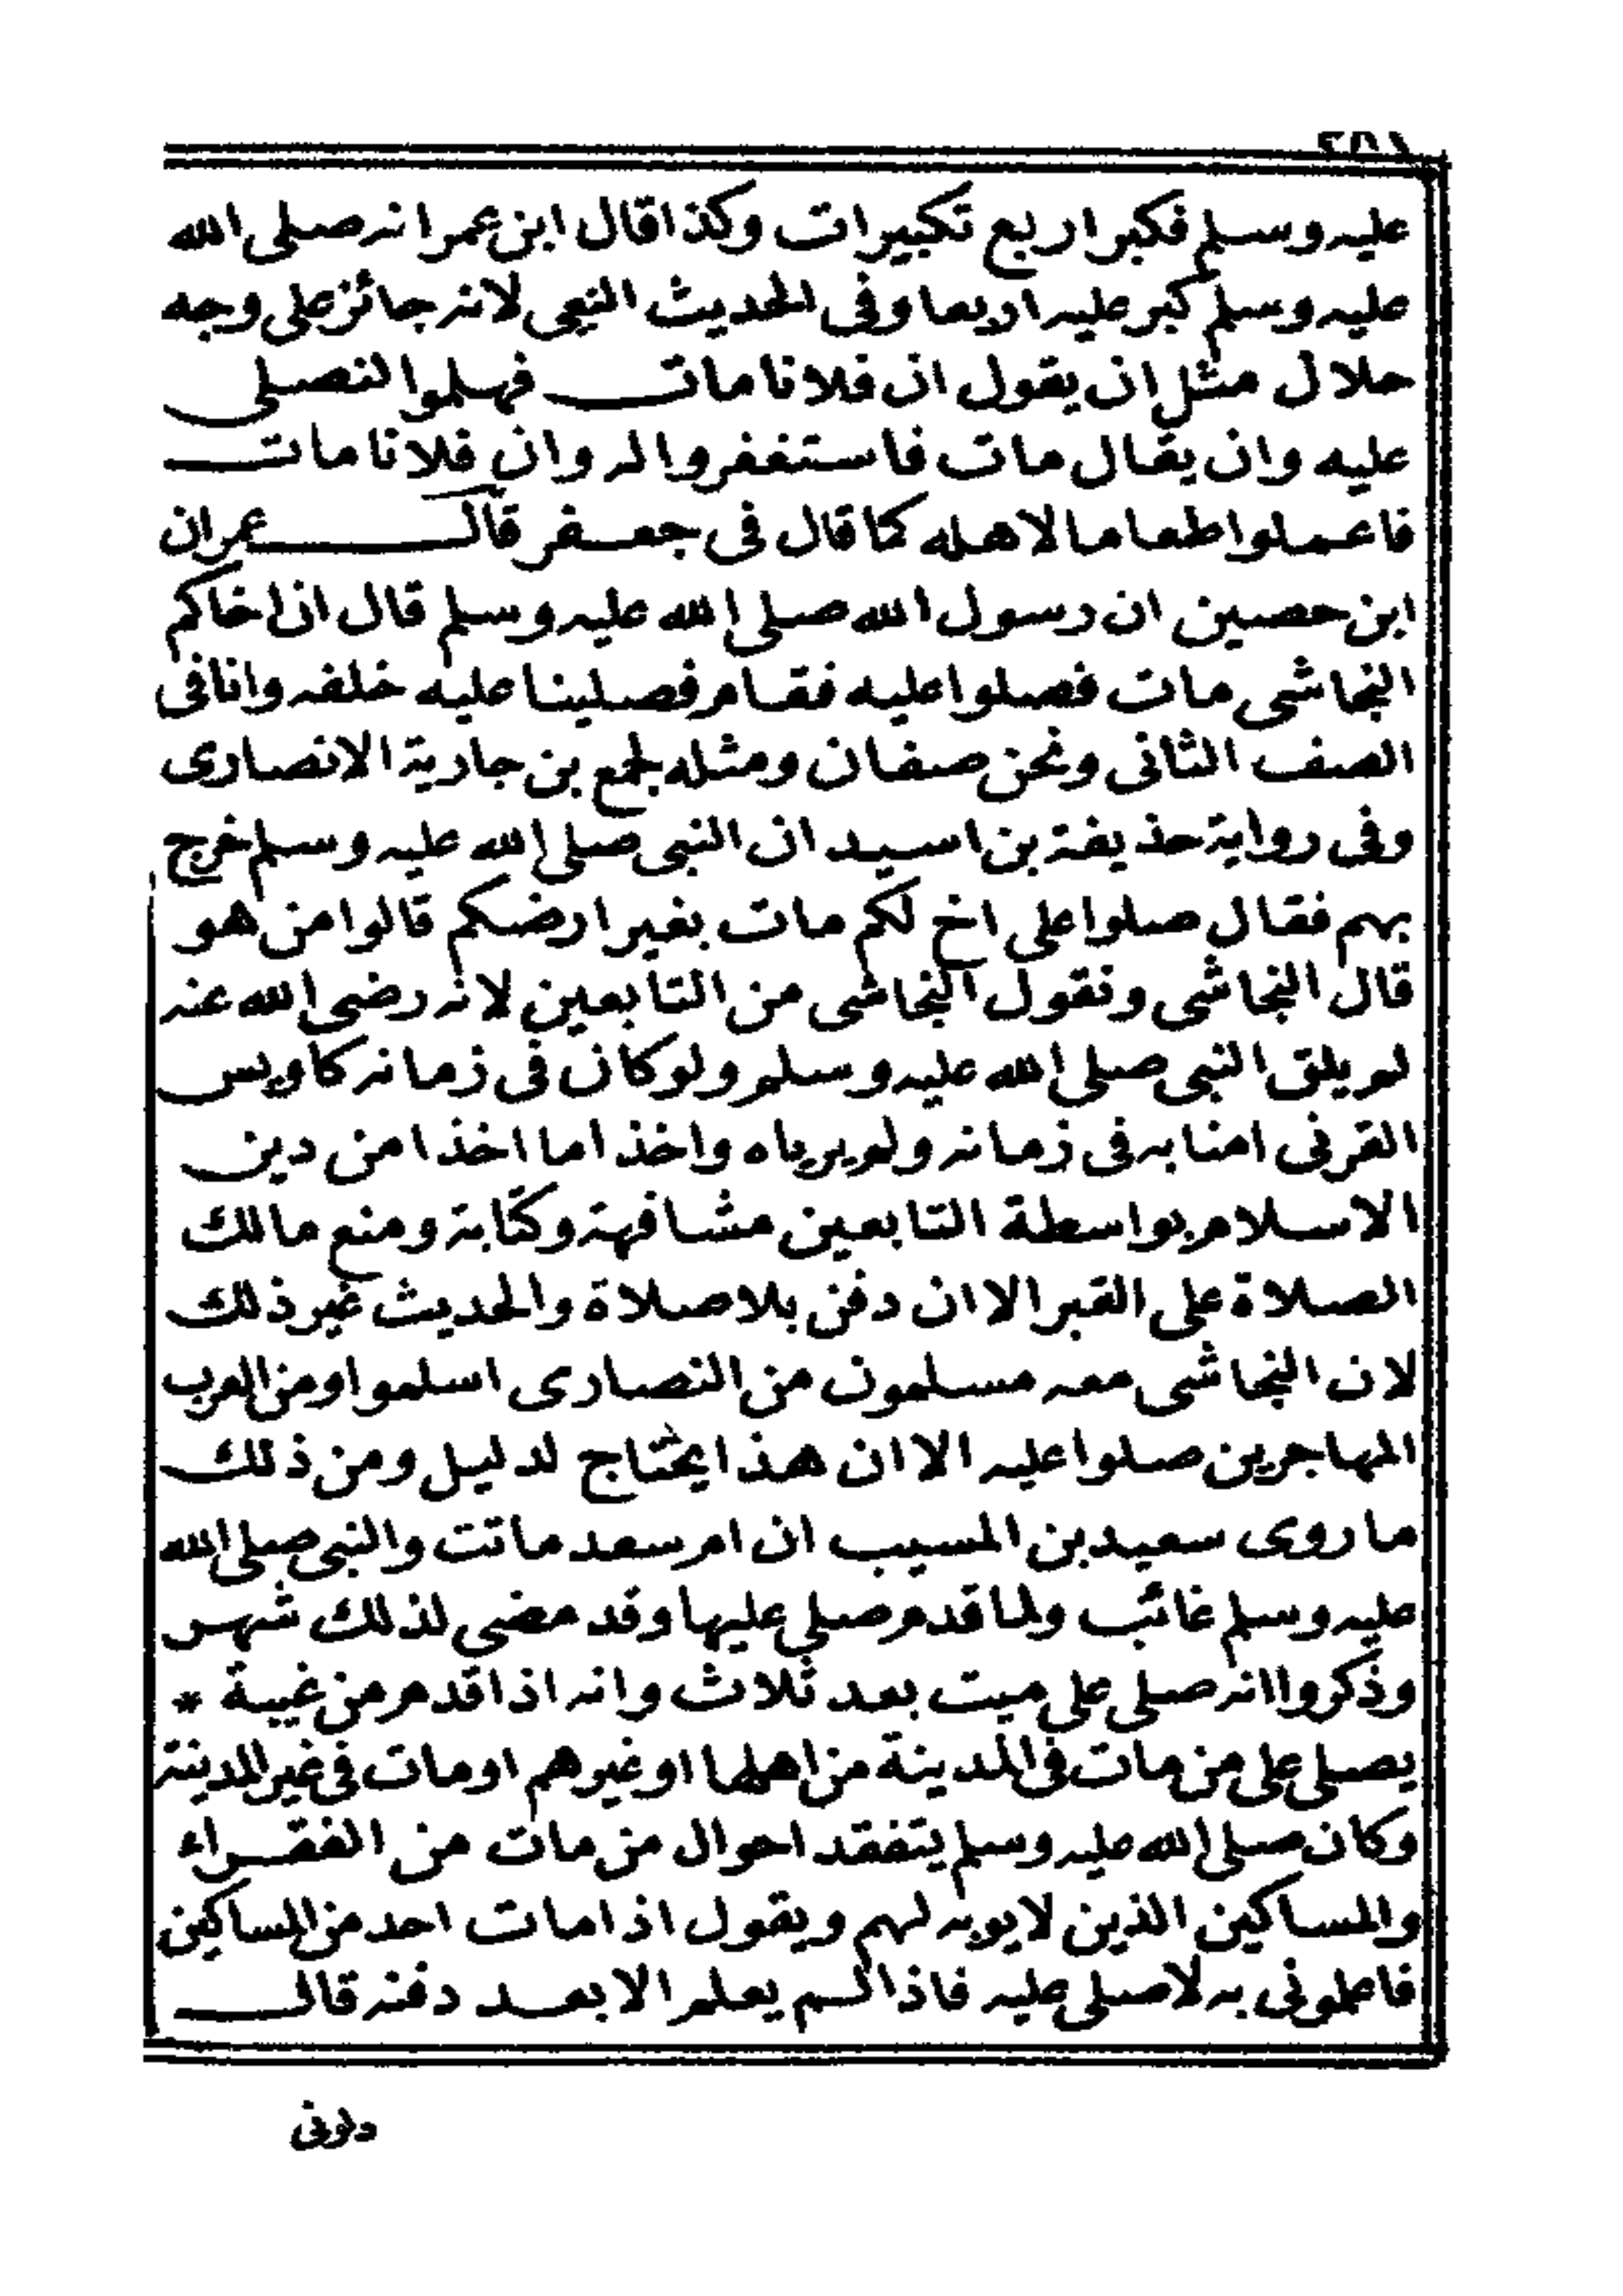 عليه وسلم فكبر اربع تكبيرات وكذا قال ابن عمر انه صلى الله
عليه وسلم كبر عليه اربعا وفى الحديث النعي لانه جائز على وجه
حلال مثل ان يقول ان فلانا مات فهلموا لنصلى
عليه وان يقال مات فاستغفروا له وان فلانا مات
فاعملوا طعاما لاهله كما قال فى جعفر قال عمران
ابن حصين ان رسول الله صلى الله عليه وسلم قال ان اخاكم
النجاشى مات فصلوا عليه فقام فصلينا عليه خلفه وانا فى
الصف الثانى ونحن صفان ومثله لمجمع بن جارية الانصارى
وفى رواية حذيفة بن اسيد ان النبى صلى الله عليه وسلم خرج
بهم فقال صلوا على اخ لكم مات بغير ارضكم قالوا من هو
قال النجاشى ونقول النجاشى من التابعين لانه رضى الله عنه
لم يلق النبى صلى الله عليه وسلم ولو كان فى زمانه كاويس
القرنى امنا به فى زمانه ولم يرياه واخذا ما اخذا من دين
الاسلام بواسطة التابعين مشافهة وكتابة ومنع مالك
الصلاة على القبر الا ان دفن بلا صلاة والحديث غير ذلك
لان النجاشى معه مسلمون من النصارى اسلموا ومن العرب
المهاجرين صلوا عليه الا ان هذا يحتاج لدليل ومن ذلك
ما روى سعيد بن المسيب ان ام سعد ماتت والنبى صلى الله
عليه وسلم غائب ولما قدم صلى عليها وقد مضى لذلك شهر
وذكروا انه صلى على ميت بعد ثلاث وانه اذا قدم من غيبة *
يصلى على من مات فى المدينة من اهلها او غيرهم او مات فى غير المدينة
وكان صلى الله عليه وسلم يتفقد احوال من مات من الفقراء
والمساكين الذين لا يوبه لهم ويقول اذا مات احد من المساكين
فاعلمونى به لاصلى عليه فاذا لم يعلم الا بعد دفنه قال
دلونى